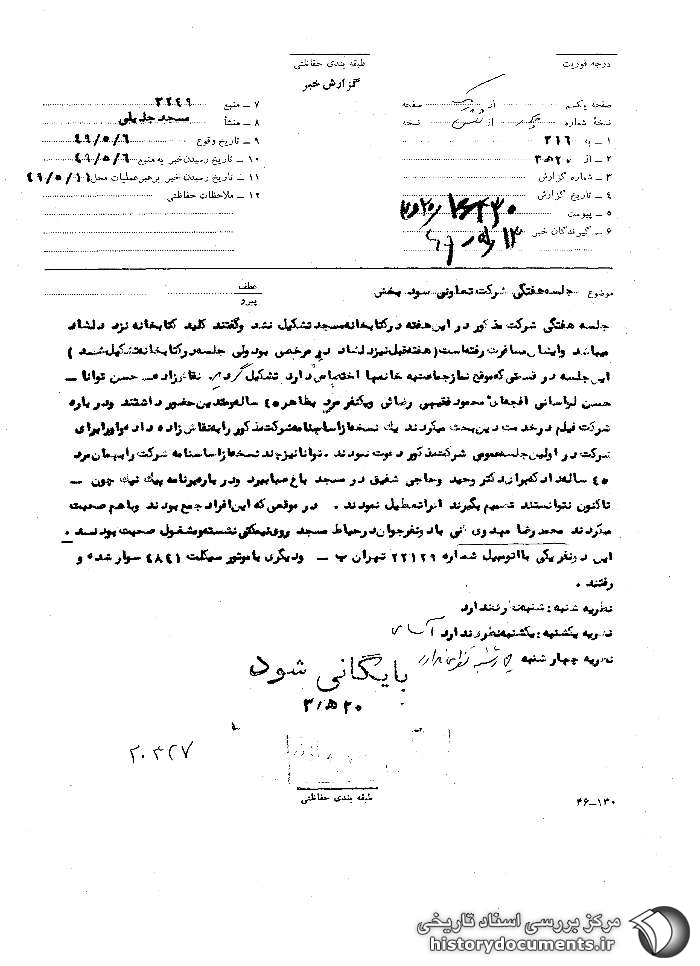 درجه فوریت
طبقه بندی حفاظتی
گزارش خبر
صفحه یکم از صفحه
نسخهٔ شماره از نسخه
۱ ــ به ۳۱۶
۲ ــ از ۲۰ ه‍ ۳
۳ ــ شماره گزارش
۴ ــ تاریخ گزارش
۵ ــ پیوست
۶ ــ گیرندگان خبر
۷ ــ منبع ۳۲۴۹
۸ ــ منشأ مسجد جلیلی
۹ ــ تاریخ وقوع ۴۹/۵/۶
۱۰ ــ تاریخ رسیدن خبر به منبع ۴۹/۵/۶
۱۱ ــ تاریخ رسیدن خبر برهبر عملیات محل ۴۹/۵/۱۱
۱۲ ــ ملاحظات حفاظتی
موضوع جلسه هفتگی شرکت تعاونی سود بخش
عطف
پیرو
جلسه هفتگی شرکت مذکور در این هفته در کتابخانه مسجد تشکیل نشد و گفتند کلید کتابخانه نزد دلشاد
میباشد وایشان مسافرت رفته است (هفته قبل نیز دلشاد در مرخصی بود ولی جلسه در کتابخانه تشکیل شد)
این جلسه در قسمتی که موقع نماز جماعت به خانمها اختصاص دارد تشکیل گردید نقاش زاده ــ حسن توانا ــ
حسن لواسانی محمود فقیهی رضائی ویکنفر مرد بظاهر ۴۵ ساله حضور داشتند ودر باره
شرکت فیلم در خدمت دین بحث میکردند یک نسخه از اساسنامه شرکت مذکور را به نقاش زاده داد و او را برای
شرکت در اولین جلسه عمومی شرکت مذکور دعوت نمودند . توانا نیز چند نسخه از اساسنامه شرکت را بهمان مرد
۴۵ ساله داد که برای دکتر وحید وحاجی شفیق در مسجد باغ صبا ببرد ودر باره برنامه پیک نیک چون ــ
تاکنون نتوانستند تصمیم بگیرند آنرا تعطیل نمودند . در موقعی که این افراد جمع بودند وباهم صحبت
میکردند محمد رضا مهدوی کنی با دو نفر جوان در حیاط مسجد روی نیمکتی نشسته و مشغول صحبت بودند .
این دو نفر یکی با اتومبیل شماره ۲۲۱۲۹ تهران ب ــ ودیگری با موتور سیکلت ۴۸۴۱ سوار شده و
رفتند .
نظریه شنبه : شنبه نظری ندارد
نظریه یکشنبه : یکشنبه نظری ندارد آسا
نظریه چهارشنبه چهارشنبه نظری ندارد
بایگانی شود
۲۰ ه‍ ۳
۲۰۳۲۷
طبقه بندی حفاظتی
۴۶ــ۱۳۰
مرکز بررسی اسناد تاریخی
historydocuments.ir